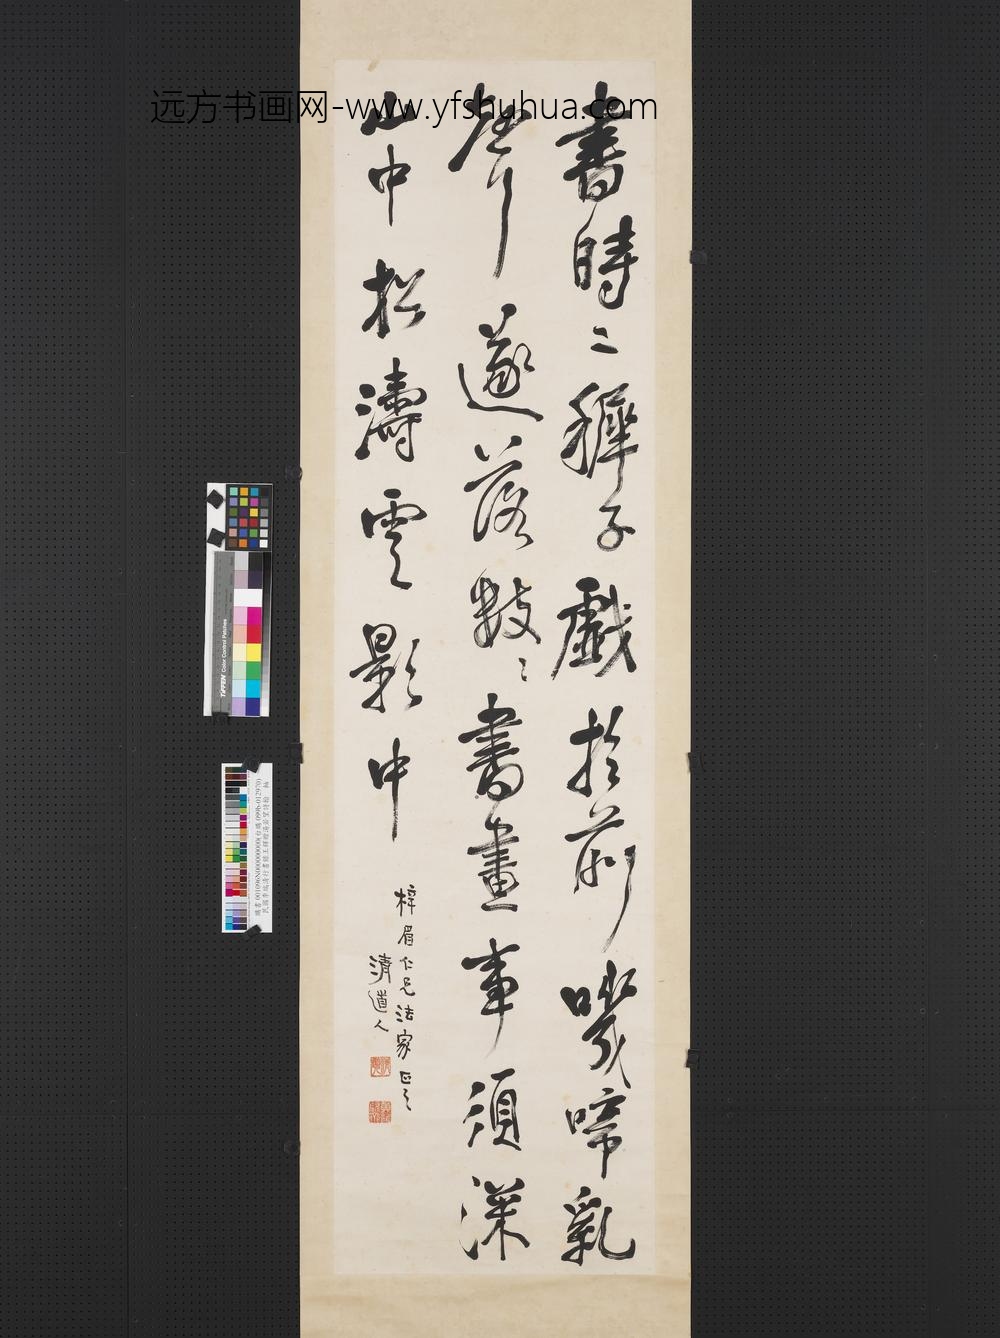 远方书画网-www.yfshuhua.com
書時二穉子戲於前嘰啼亂
聲遂落數〻書畫事須深
山中松濤雲影中
梓眉仁兄法家正之
清道人
TIFFEN Color Control Patches